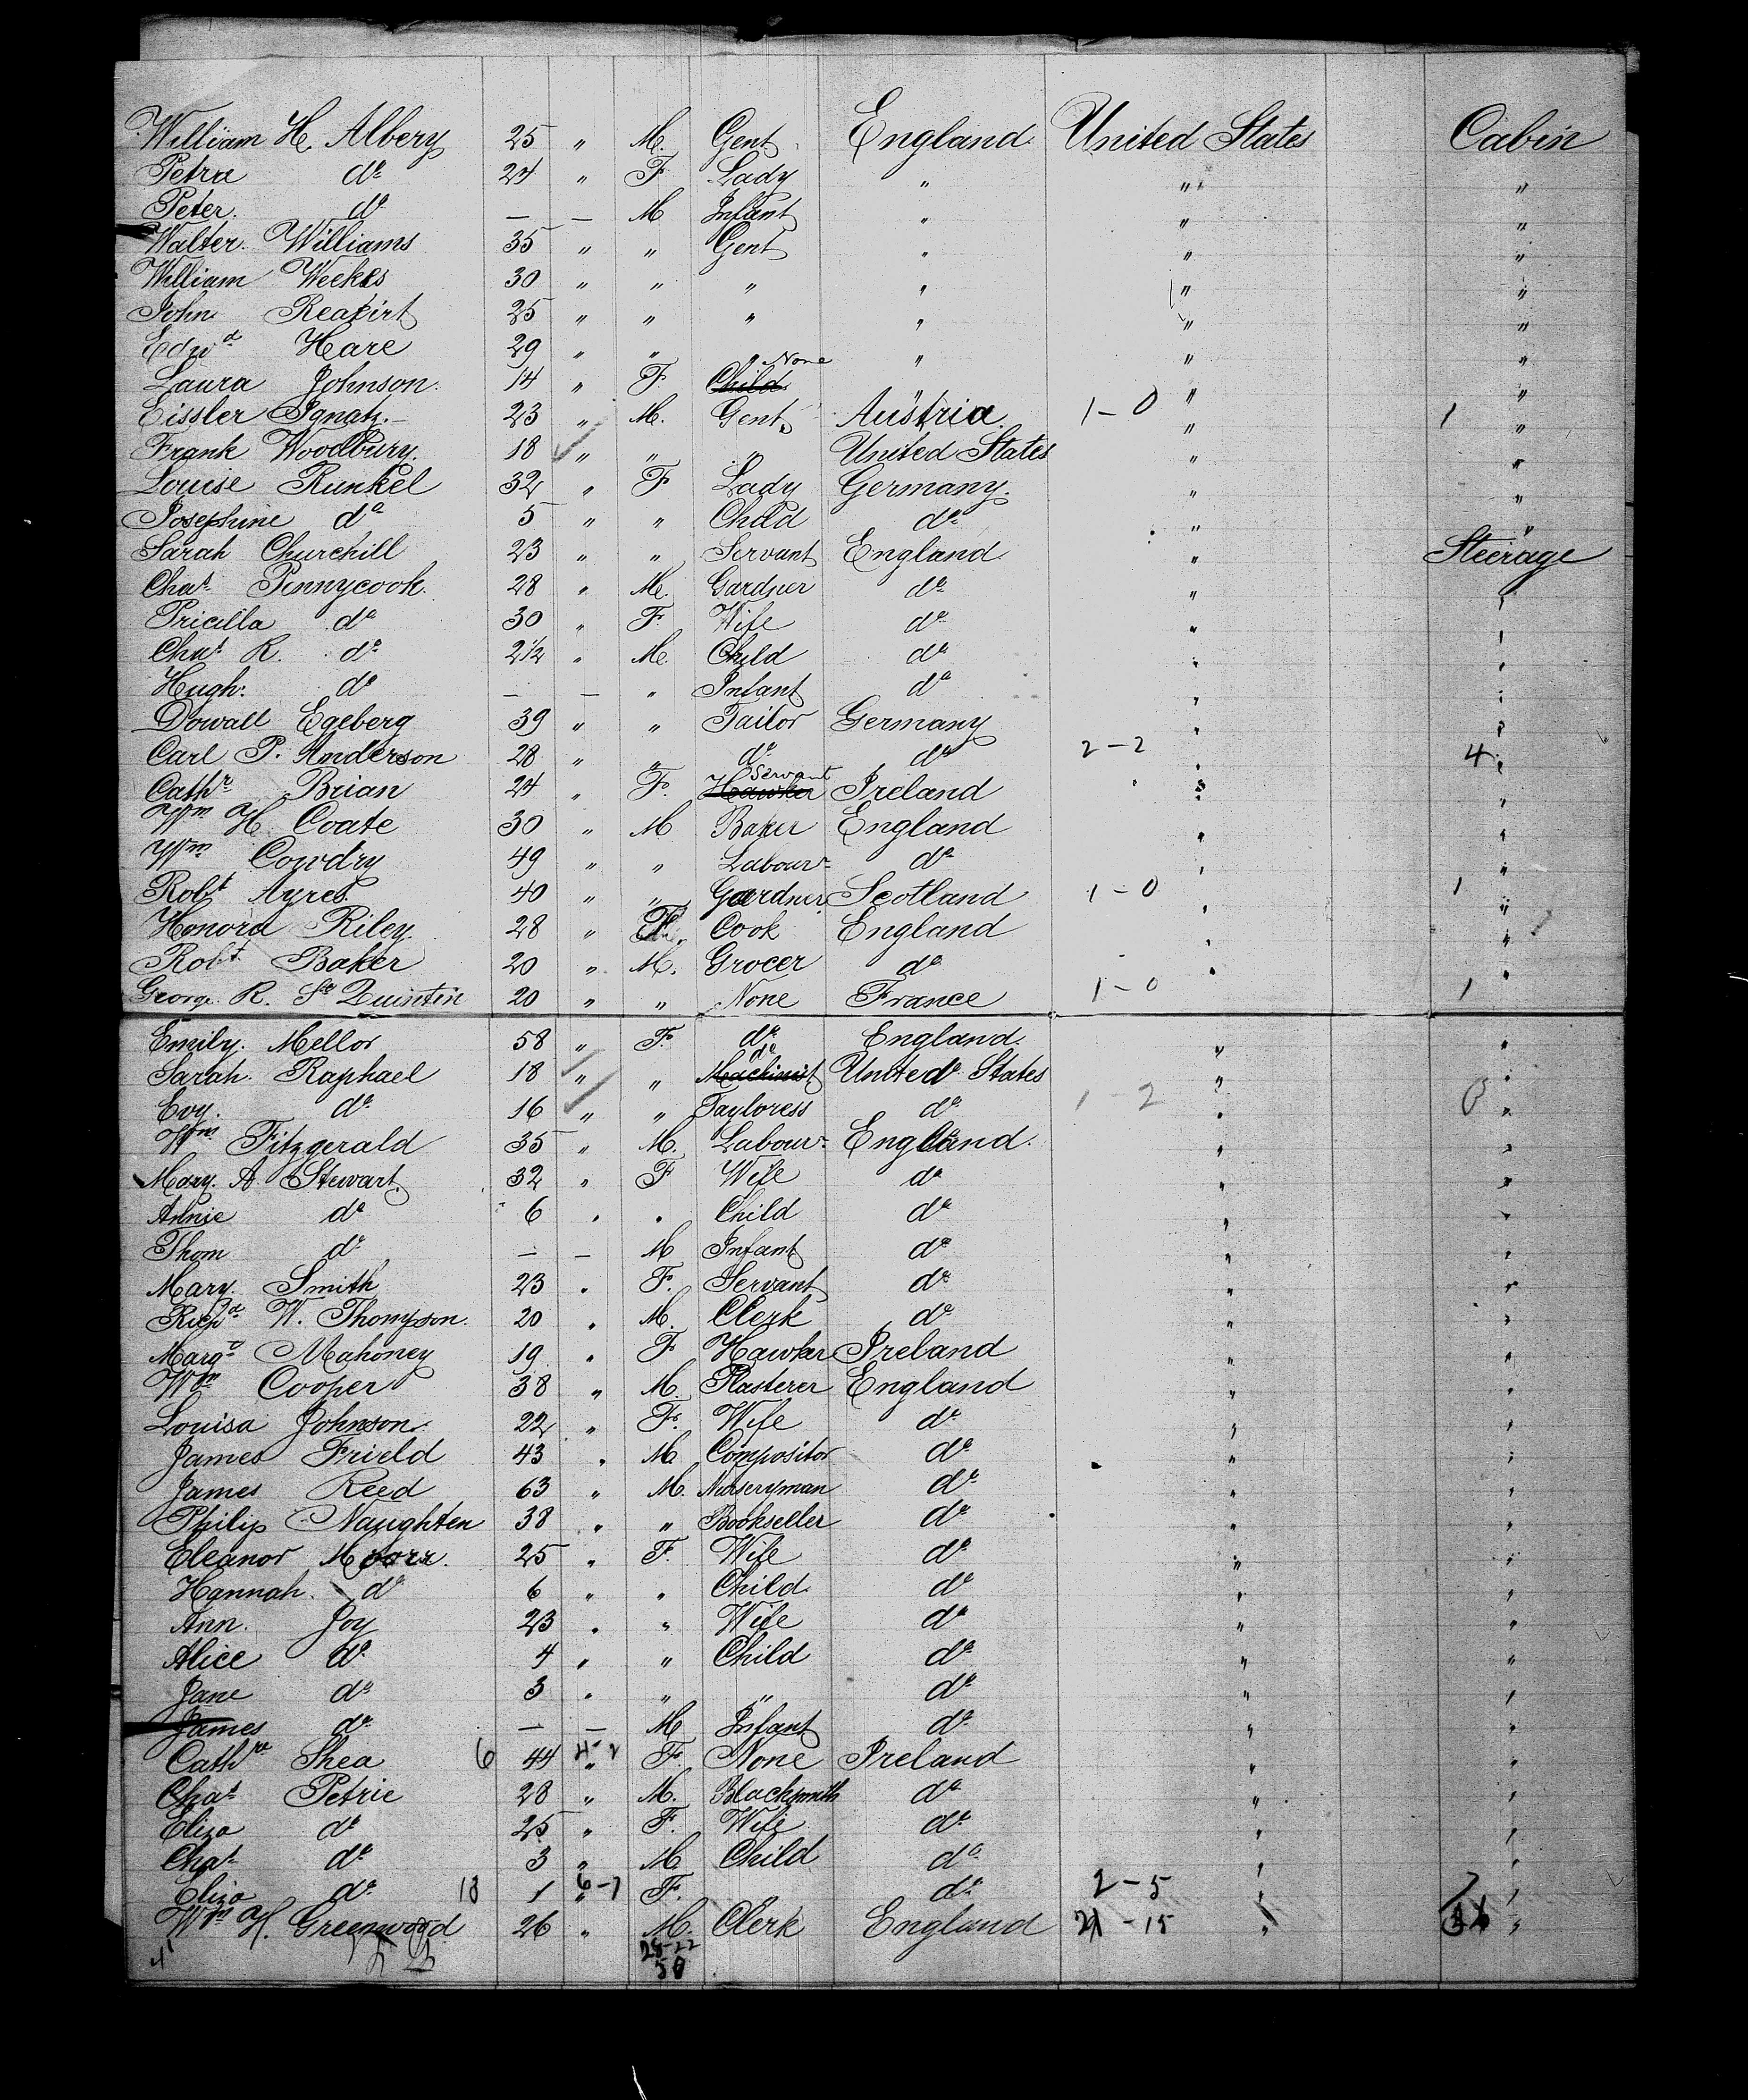 William H. Albery 25 " M. Gent England United States Cabin
Petra do 24 " F Lady " " "
Peter. do — — M Infant " " "
Walter. Williams 35 " " Gent " " "
William Weekes 30 " " " " " "
John Reakirt 25 " " " " " "
Edwd Hare 29 " " " " " "
None
Laura Johnson. 14 " F. Child " " "
Eissler Ignatz. 23 " M. Gent. Austria 1-0 " 1 "
Frank Woodbury. 18 " " " United States " "
Louise Runkel 32 " F Lady Germany. " "
Josephine do 5 " " Child do " "
Sarah Churchill 23 " " Servant England " Steerage
Chas Pennycook. 28 " M. Gardner do " "
Pricilla do 30 " F. Wife do " "
Chas R. do 2 1/2 " M. Child do " "
Hugh. do — — " Infant do " "
Dowall Egeberg 39 " " Tailor Germany " "
Carl P. Anderson 28 " " do do 2-2 " 4 "
Servant
Cathr Brian 24 " F. Hawker Ireland " "
Wm H. Coate 30 " M Baker England " "
Wm Cowdry 49 " " Labourr do " "
Robt Ayres 40 " " Gardner Scotland 1-0 " 1 "
Honora Riley. 28 " F. Cook England " "
Robt Baker 20 " M. Grocer do " "
George. R. St Quintin 20 " " None France 1-0 1 "
Emily. Mellor 58 " F. do England. " "
do
Sarah. Raphael 18 " " Machinist United States " "
Evy. do 16 " " Tayloress do 1-2 " "
Wm Fitzgerald 35 " M. Labourr England. " "
Mary. A. Stewart. 32 " F Wife do " "
Annie do 6 " " Child do " "
Thom do — — M Infant do " "
Mary. Smith 23 " F. Servant do " "
Richd W. Thompson. 20 " M. Clerk do " "
Margt Mahoney 19 " F Hawker Ireland " "
Wm Cooper 38 " M. Plasterer England " "
Louisa Johnson. 22 " F. Wife do " "
James Frield 43 " M. Compositor do " "
James Reed 63 " M. Nurseryman do " "
Philip Naughten 38 " " Bookseller do " "
Eleanor 25 " F. Wife do " "
Hannah. do 6 " " Child. do " "
Ann. Joy 23 " " Wife do " "
Alice do 4 " " Child do " "
Jane do 3 " " " do " "
James do — — M Infant do " "
Cathre Shea 6 44 " F. None Ireland " "
Chas Petrie 28 " M. Blacksmith do " "
Eliza do 25 " F. Wife do " "
Chas do 3 " M. Child do " "
Eliza do 13 1 6-7 " F. " do 2-5 " 7 "
Wm H. Greenwood 26 " M. Clerk England 21-15 " "
28-22
50